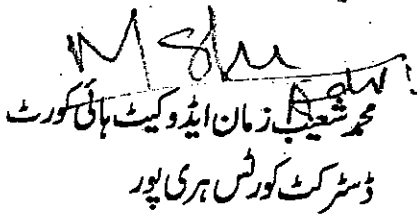 محمد شعیب زمان ایڈوکیٹ ہائی کورٹ
ڈسٹرکٹ کورٹس ہری پور